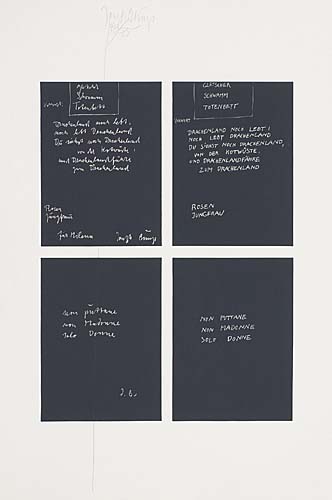 Joseph Beuys
Schwamm
Totenbett
Drachenland noch lebt,
noch lebt Drachenland
Du siehst noch Drachenland
von der Kotwüste,
und Drachenlandfähre
zum Drachenland
Rosen
Jungfrau
Joseph Beuys
GLETSCHER
SCHWAMM
TOTENBETT
DRACHENLAND NOCH LEBT!
NOCH LEBT DRACHENLAND
DU SIEHST NOCH DRACHENLAND,
VON DER KOTWÜSTE.
UND DRACHENLANDFÄHRE
ZUM DRACHENLAND
ROSEN
JUNGFRAU
non puttane
non Madonne
solo Donne
J. B.
NON PUTTANE
NON MADONNE
SOLO DONNE